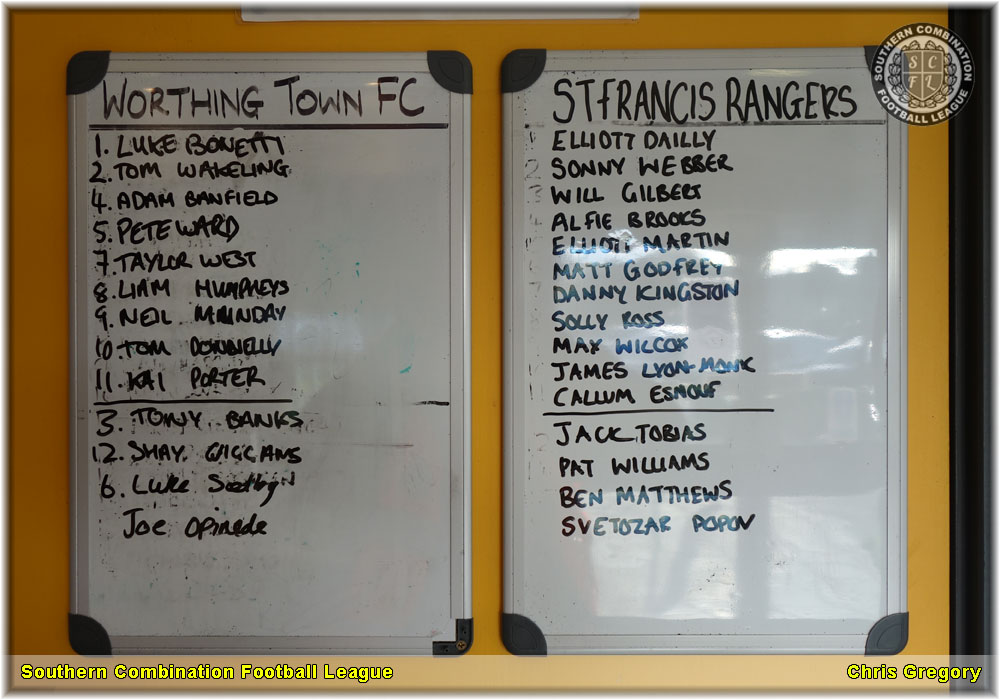 WORTHING TOWN FC
1. LUKE BONETTI
2. TOM WAKELING
4. ADAM BANFIELD
5. PETE WARD
7. TAYLOR WEST
8. LIAM HUMPHEYS
9. NEIL MUNDAY
10. TOM DONNELLY
11. KAI PORTER
3. TONY BANKS
12. SHAY
6. Luke
Joe
ST FRANCIS RANGERS
ELLIOTT DAILLY
SONNY WEBBER
WILL GILBERT
ALFIE BROOKS
ELLIOTT MARTIN
MATT GODFREY
DANNY KINGSTON
SOLLY ROSS
MAX WILCOX
JAMES LYON-MONK
CALLUM ESNOUF
JACK TOBIAS
PAT WILLIAMS
BEN MATTHEWS
SVETOZAR POPOV
SOUTHERN COMBINATION
SCFL
FOOTBALL LEAGUE
Southern Combination Football League
Chris Gregory